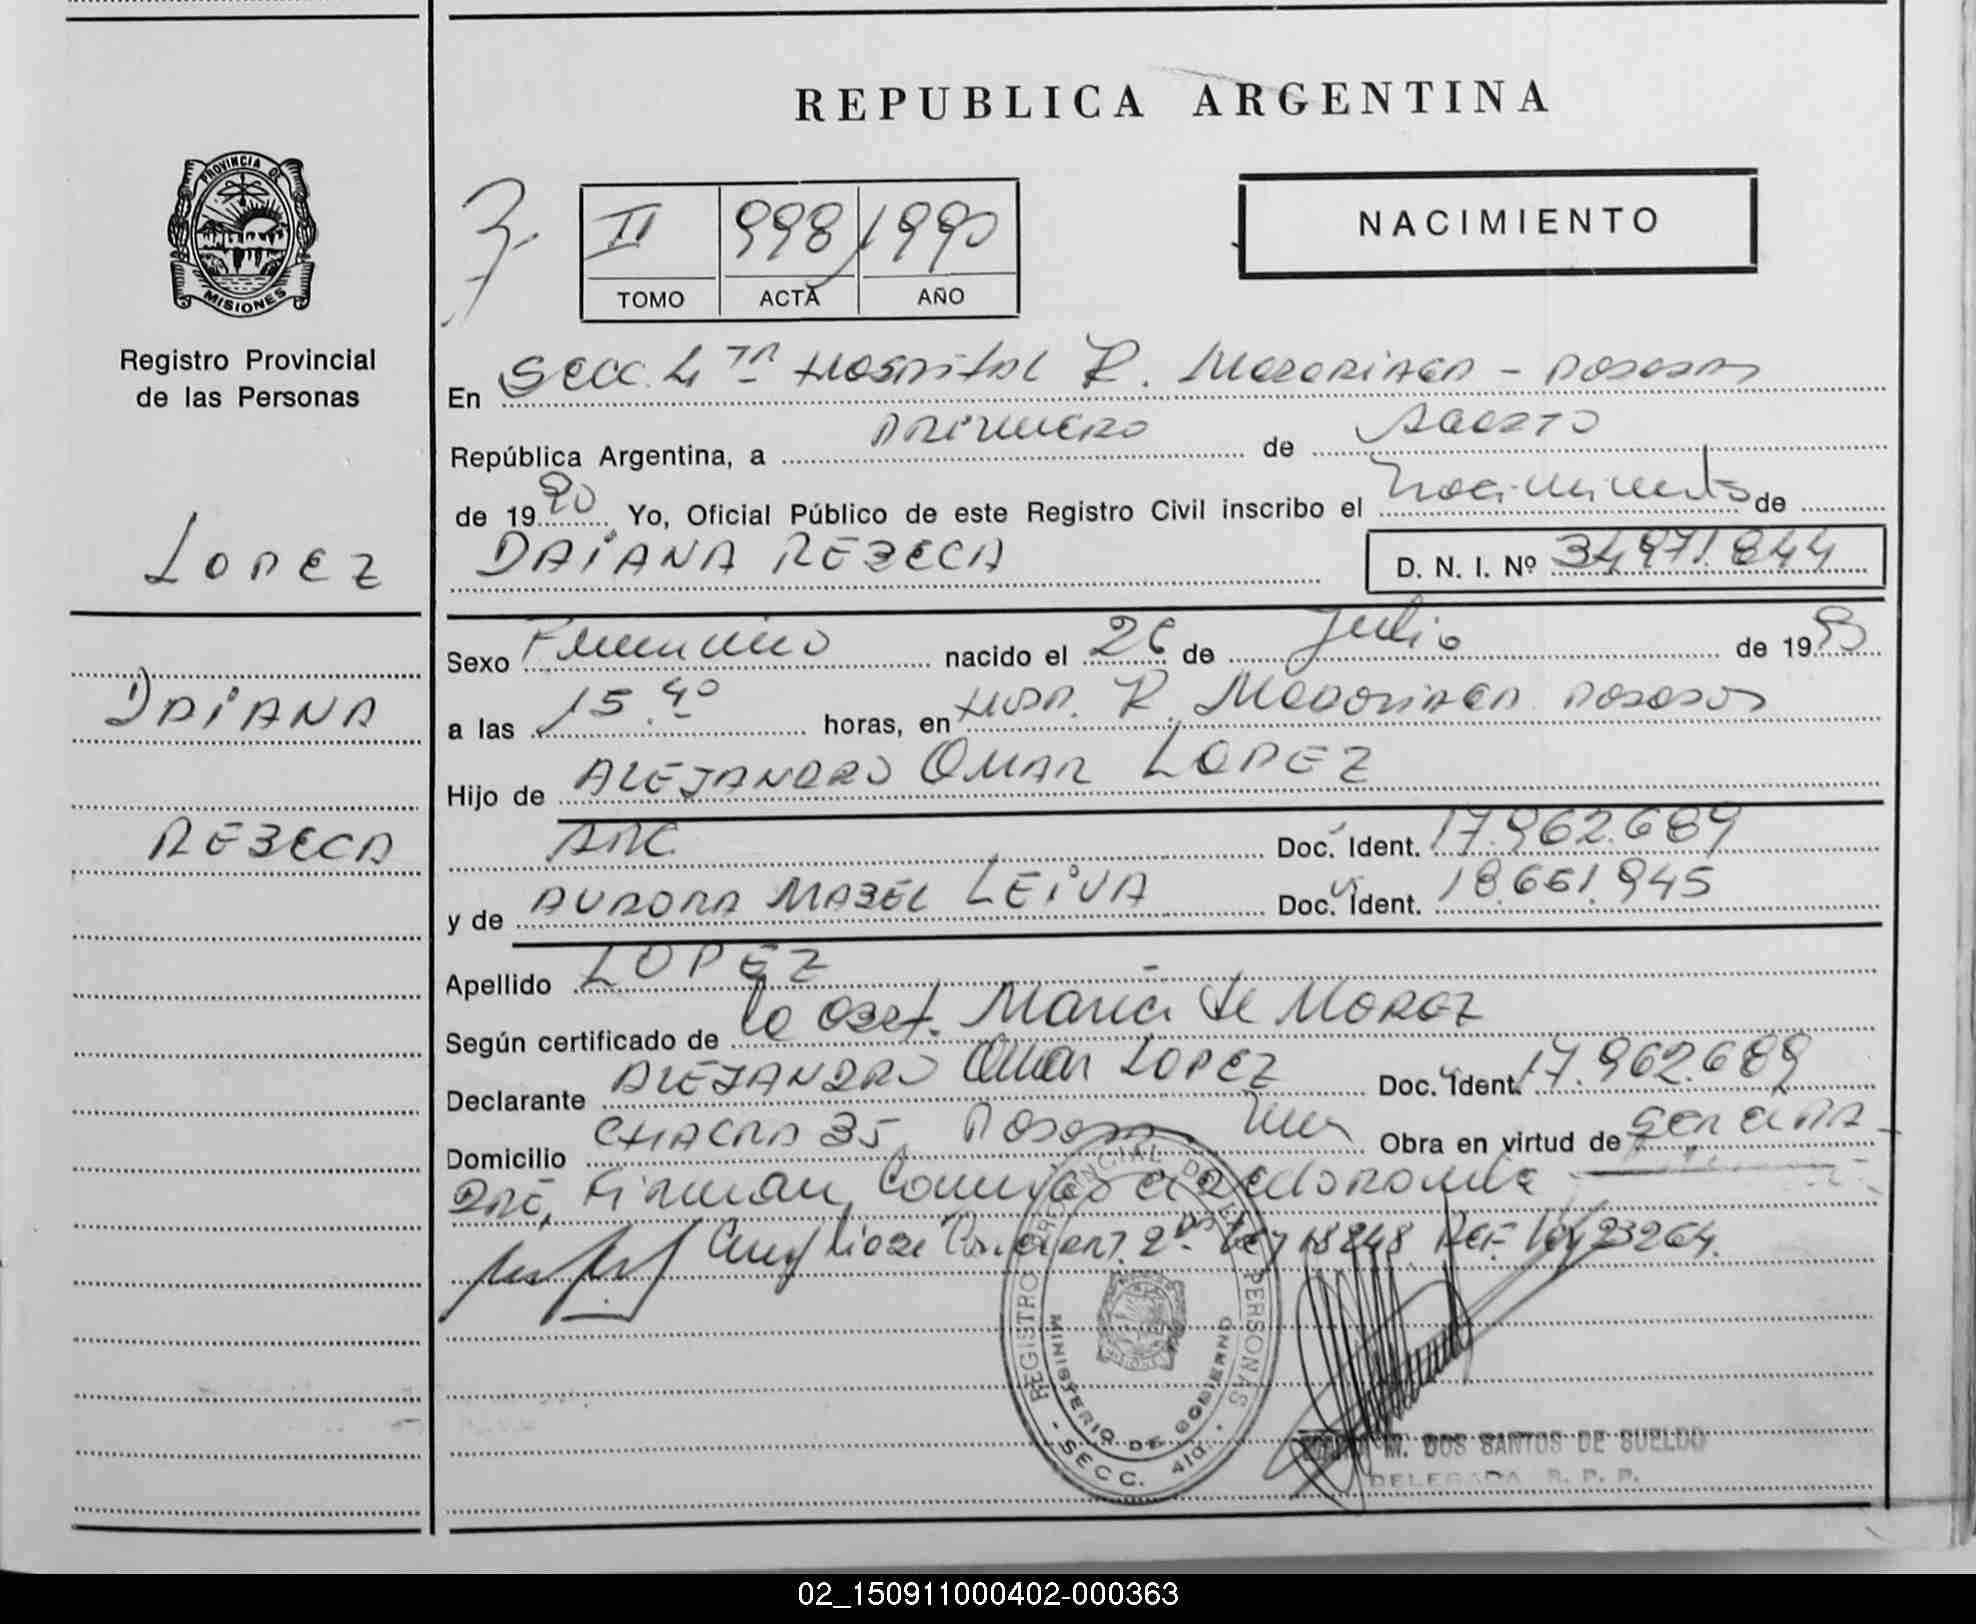 REPUBLICA ARGENTINA
PROVINCIA DE
MISIONES
Registro Provincial
de las Personas
II 998 1990
TOMO ACTA AÑO
NACIMIENTO
En Secc. 4ta Hospital R. Madariaga - Posadas
República Argentina, a primero de Agosto
de 1990 Yo, Oficial Público de este Registro Civil inscribo el Nacimiento de
DAIANA REBECA D. N. I. Nº 34971.844
LOPEZ
DAIANA
REBECA
Sexo Femenino nacido el 26 de Julio de 1990
a las 15.40 horas, en Hosp. R. Madariaga Posadas
Hijo de ALEJANDRO OMAR LOPEZ
ARG. Doc. Ident. 17.962.689
y de AURORA MABEL LEIVA Doc. Ident. 18.661.945
Apellido LOPEZ
Según certificado de la Obst. Maria de MORAZ
Declarante ALEJANDRO Omar LOPEZ Doc. Ident. 17.962.689
Domicilio CHACRA 35, Posadas Mnes Obra en virtud de ser el PA-
DRE, Firman, Conmigo el declarante
Ley 18248 Ref. Ley 23264.
REGISTRO PROVINCIAL DE LAS PERSONAS
MINISTERIO DE GOBIERNO
- SECC. 4ta. -
M. DOS SANTOS DE SUELDO
DELEGADA R. P. P.
02_150911000402-000363